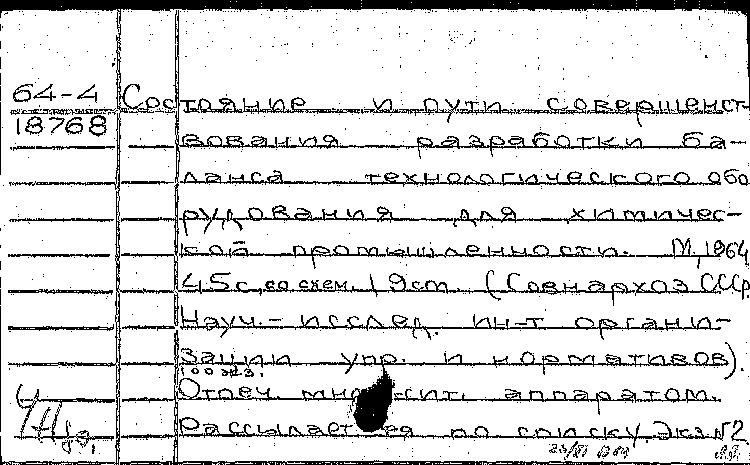 64-4 Состояние и пути совершенст-
18768 вования разработки ба-
ланса технологического обо
рудования для химичес-
кой промышленности. М, 1964
45с. со схем. 1 9см. (Совнархоз СССР.
Науч.-исслед. ин-т органи-
зации упр. и нормативов).
100 экз.
Отпеч. аппаратом.
Рассылается по списку. Экз №2